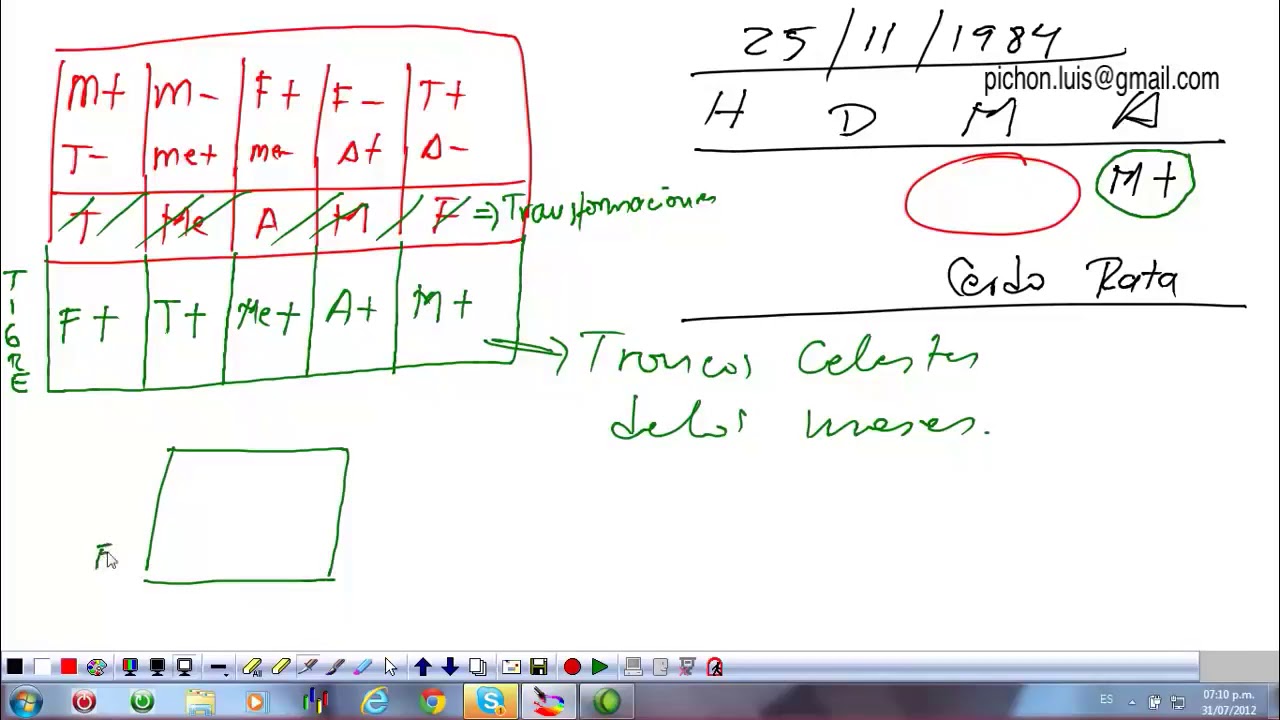 25/11/1984
pichon.luis@gmail.com
H D M A
M+
Cerdo Rata
M+ M- F+ F- T+
T- me+ me- A+ A-
T Me A M F => Transformaciones
TIGRE
F+ T+ Me+ A+ M+
Troncos Celestes
de los meses.
F
All
ES
07:10 p.m.
31/07/2012